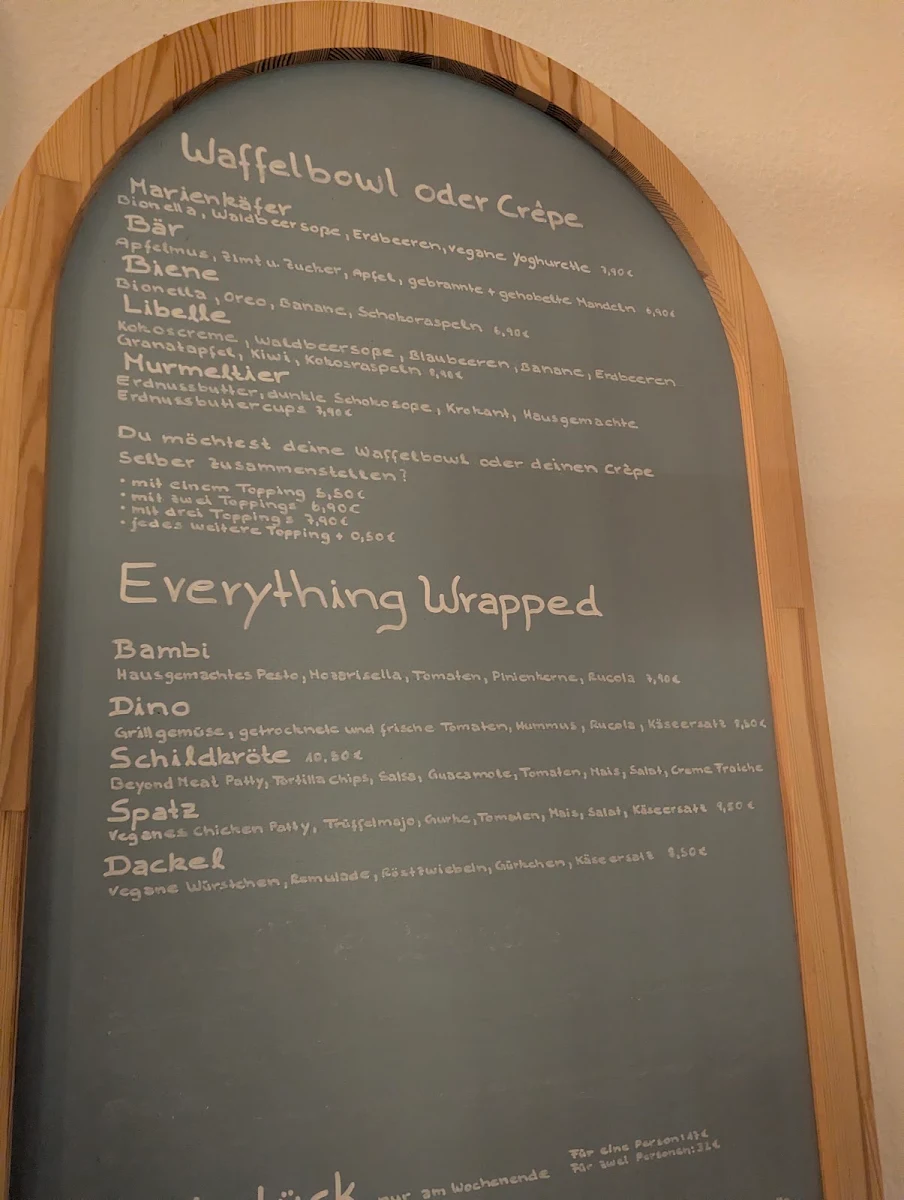 Waffelbowl oder Crêpe
Marienkäfer
Bionella, Waldbeersoße, Erdbeeren, vegane Yoghurette 7,90€
Bär
Apfelmus, Zimt u. Zucher, Apfel, gebrannte + gehobelte Mandeln 6,90€
Biene
Bionella, Oreo, Banane, Schokoraspeln 6,90€
Libelle
Kokoscreme, Waldbeersoße, Blaubeeren, Banane, Erdbeeren
Granatapfel, Kiwi, Kokosraspeln 8,90€
Murmeltier
Erdnussbutter, dunkle Schokosoße, Krokant, Hausgemachte
Erdnussbuttercups 7,90€
Du möchtest deine Waffelbowl oder deinen Crêpe
Selber zusammenstellen?
• mit einem Topping 5,50€
• mit zwei Toppings 6,90€
• mit drei Toppings 7,90€
• jedes weitere Topping + 0,50€
Everything Wrapped
Bambi
Hausgemachtes Pesto, Mozarisella, Tomaten, Pinienkerne, Rucola 7,90€
Dino
Grillgemüse, getrocknete und frische Tomaten, Hummus, Rucola, Käseersatz 8,50€
Schildkröte 10,50€
Beyond Meat Patty, Tortilla Chips, Salsa, Guacamole, Tomaten, Mais, Salat, Creme Fraiche
Spatz
Veganes Chicken Patty, Trüffelmajo, Gurke, Tomaten, Mais, Salat, Käseersatz 9,50€
Dackel
Vegane Würstchen, Remulade, Röstzwiebeln, Gürkchen, Käseersatz 8,50€
nur am Wochenende
Für eine Person:
Für zwei Personen: